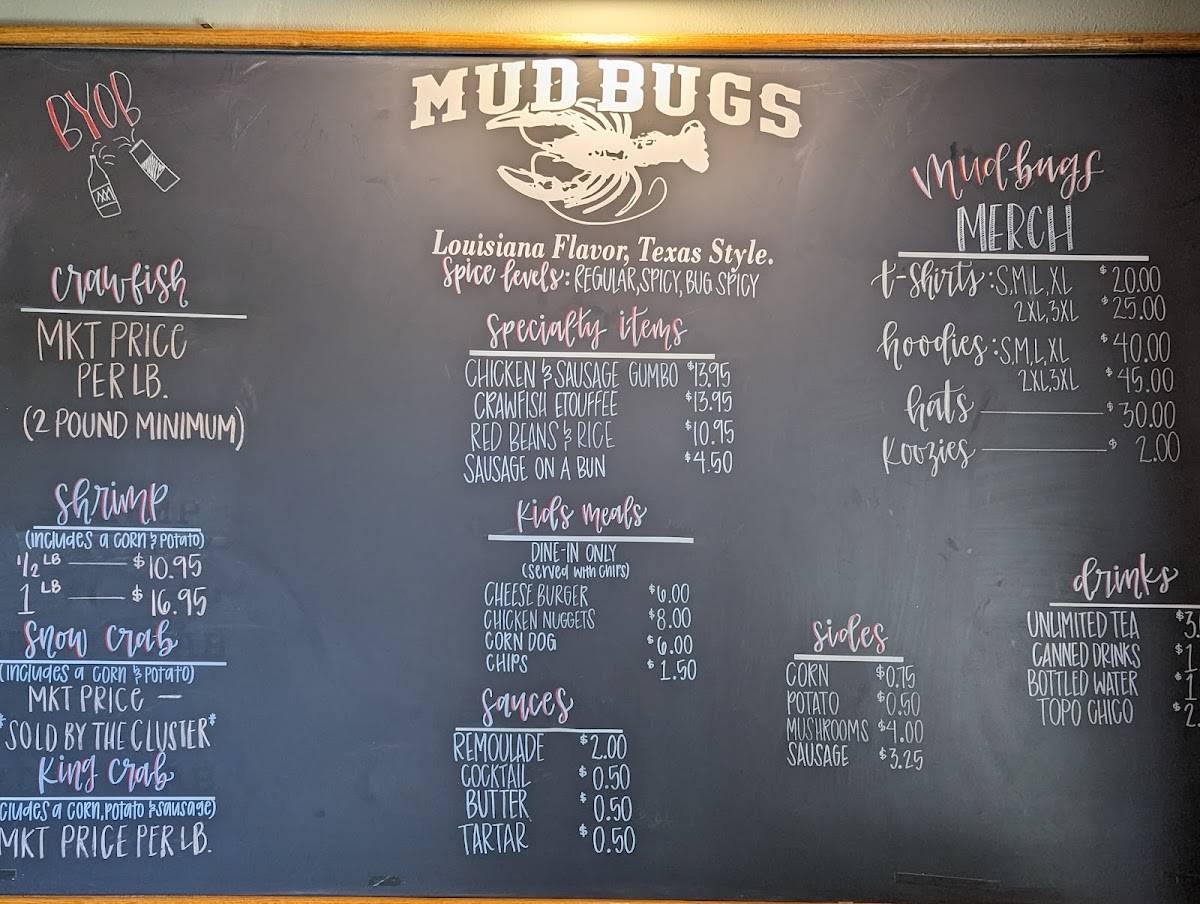 BYOB
MUD BUGS
Louisiana Flavor, Texas Style.
Spice levels: REGULAR, SPICY, BUG SPICY
crawfish
MKT PRICE
PER LB.
(2 POUND MINIMUM)
shrimp
(includes a corn & potato)
1/2 LB — $10.95
1 LB — $16.95
Snow crab
(includes a corn & potato)
MKT PRICE —
*SOLD BY THE CLUSTER*
King crab
cludes a corn, potato & sausage)
MKT PRICE PER LB.
specialty items
CHICKEN & SAUSAGE GUMBO $13.95
CRAWFISH ETOUFFEE $13.95
RED BEANS & RICE $10.95
SAUSAGE ON A BUN $4.50
kids meals
DINE-IN ONLY
(served with chips)
CHEESE BURGER $6.00
CHICKEN NUGGETS $8.00
CORN DOG $6.00
CHIPS $1.50
sauces
REMOULADE $2.00
COCKTAIL $0.50
BUTTER $0.50
TARTAR $0.50
Mudbugs
MERCH
t-shirts: S,M,L,XL $20.00
2XL,3XL $25.00
hoodies: S,M,L,XL $40.00
2XL,3XL $45.00
hats — $30.00
Koozies — $2.00
sides
CORN $0.75
POTATO $0.50
MUSHROOMS $4.00
SAUSAGE $3.25
drinks
UNLIMITED TEA $3
CANNED DRINKS $1
BOTTLED WATER $1
TOPO CHICO $2.